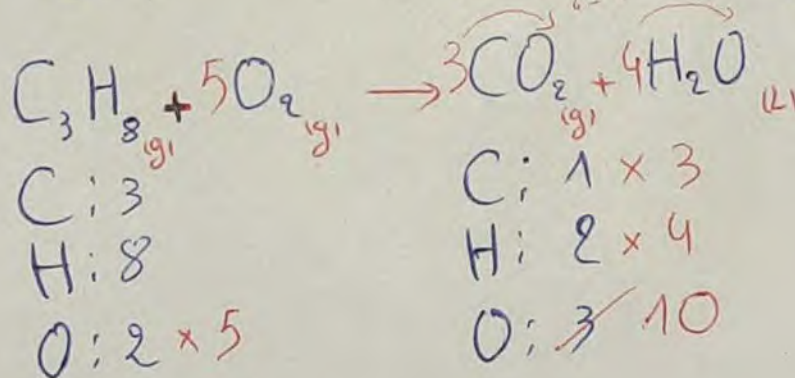 C₃H₈(g) + 5O₂(g) → 3CO₂(g) + 4H₂O(L)
C: 3
H: 8
O: 2 × 5
C: 1 × 3
H: 2 × 4
O: 3 10